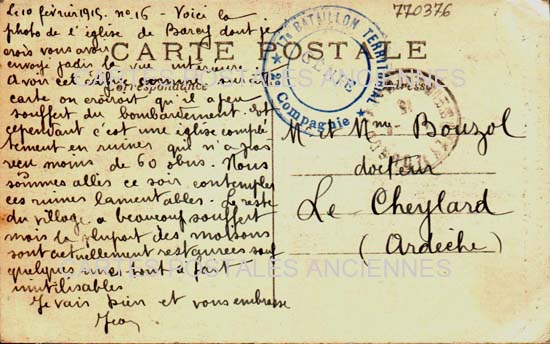 Le 10 février 1915. no 16 - Voici la
photo de l'église de Barcy dont je
crois vous avoir
envoyé jadis la vue intérieure
A voir cet édifice comme sur la
carte on croirait qu'il a peu
souffert du bombardement. Et
cependant c'est une église complè
tement en ruines qui n'a pas
reçu moins de 60 obus. Nous
sommes allés ce soir contempler
ces ruines lamentables. Le reste
du village a beaucoup souffert
mais la plupart des maisons
sont actuellement restaurées sauf
quelques unes tout à fait
inutilisables
Je vais bien et vous embrasse
Jean
CARTE POSTALE
Correspondance
Adresse
770376
BATAILLON TERRITORIAL
2e Compagnie
M. et Mme Bouzol
docteur
Le Cheylard
(Ardèche)
CARTES POSTALES ANCIENNES
CARTES POSTALES ANCIENNES